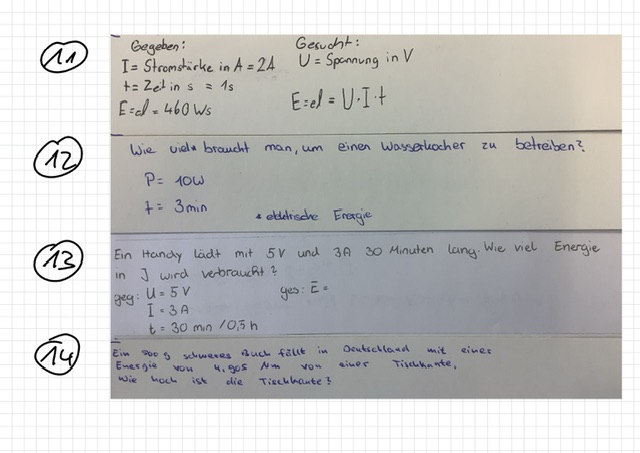 11
Gegeben: Gesucht:
I = Stromstärke in A = 2A U = Spannung in V
t = Zeit in s = 1s
E=el = 460 Ws E=el = U·I·t
12
Wie viel* braucht man, um einen Wasserkocher zu betreiben?
P = 10W
t = 3min
* elektrische Energie
13
Ein Handy lädt mit 5V und 3A 30 Minuten lang. Wie viel Energie
in J wird verbraucht?
geg: U = 5 V ges: E =
I = 3 A
t = 30 min / 0,5 h
14
Ein g schweres Buch fällt in Deutschland mit einer
Energie von 4,905 Nm von einer Tischkante,
Wie hoch ist die Tischkante?